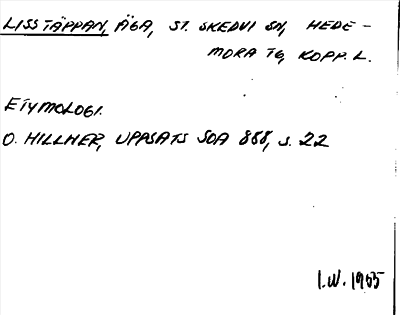 LISSTÄPPAN, ÄGA, ST. SKEDVI SN, HEDE-
MORA TG, KOPP. L.
ETYMOLOGI.
O. HILLNER, UPPSATS SOA 888, s. 22
I.W. 1965